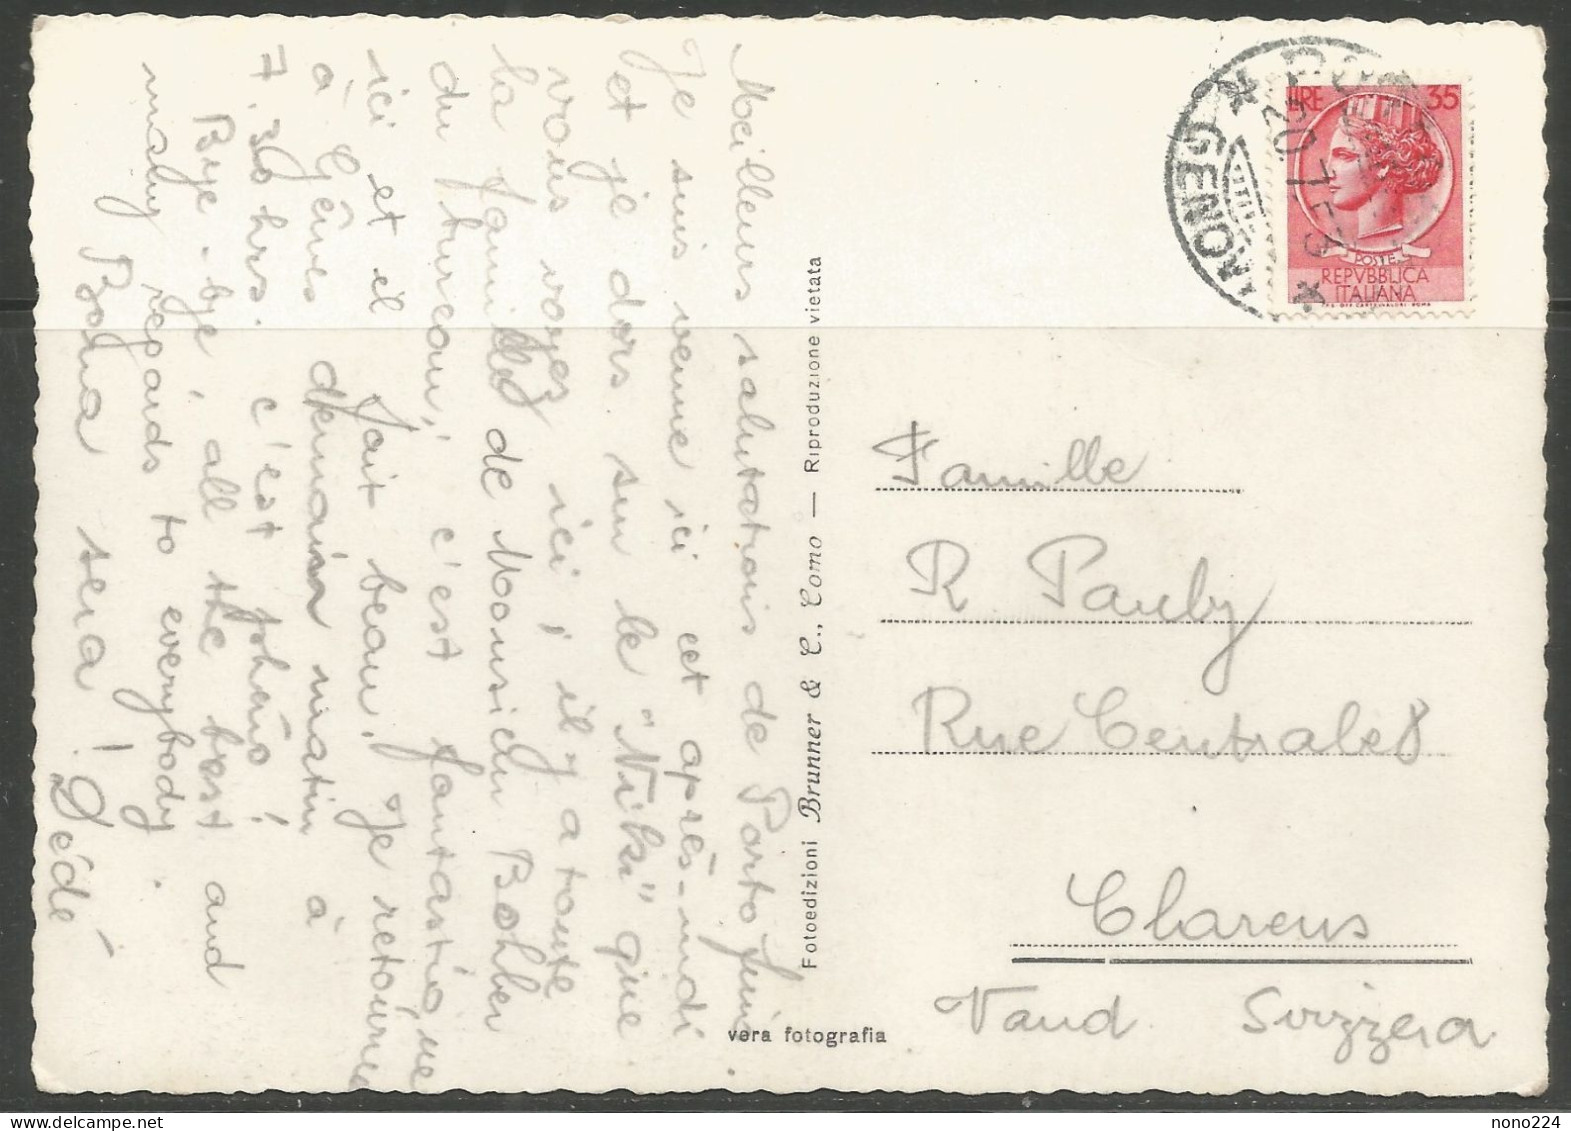 Meilleurs salutations de Portofino
Je suis venue ici cet après-midi
et je dors sur le "Niki" que
vous voyez ici, il y a toute
la famille de Monsieur
du bureau, c'est fantastique
ici et il fait beau. Je retourne
à Gênes demain matin à
7.30 hrs. c'est
Bye-bye, all the best and
many regards to everybody.
Bona sera! Dédé
Fotoedizioni Brunner & C., Como — Riproduzione vietata
vera fotografia
LIRE 35
POSTE
REPVBBLICA
ITALIANA
GENOVA
Famille
R Pauly
Rue Centrale 8
Clarens
Vaud Svizzera
nono224